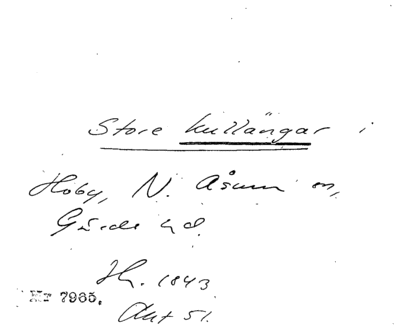 Store kullängar i
Hoby, N. Åsum sn,
Gärds hd.
Sk. 1843
Nr 7965.
Akt 51.